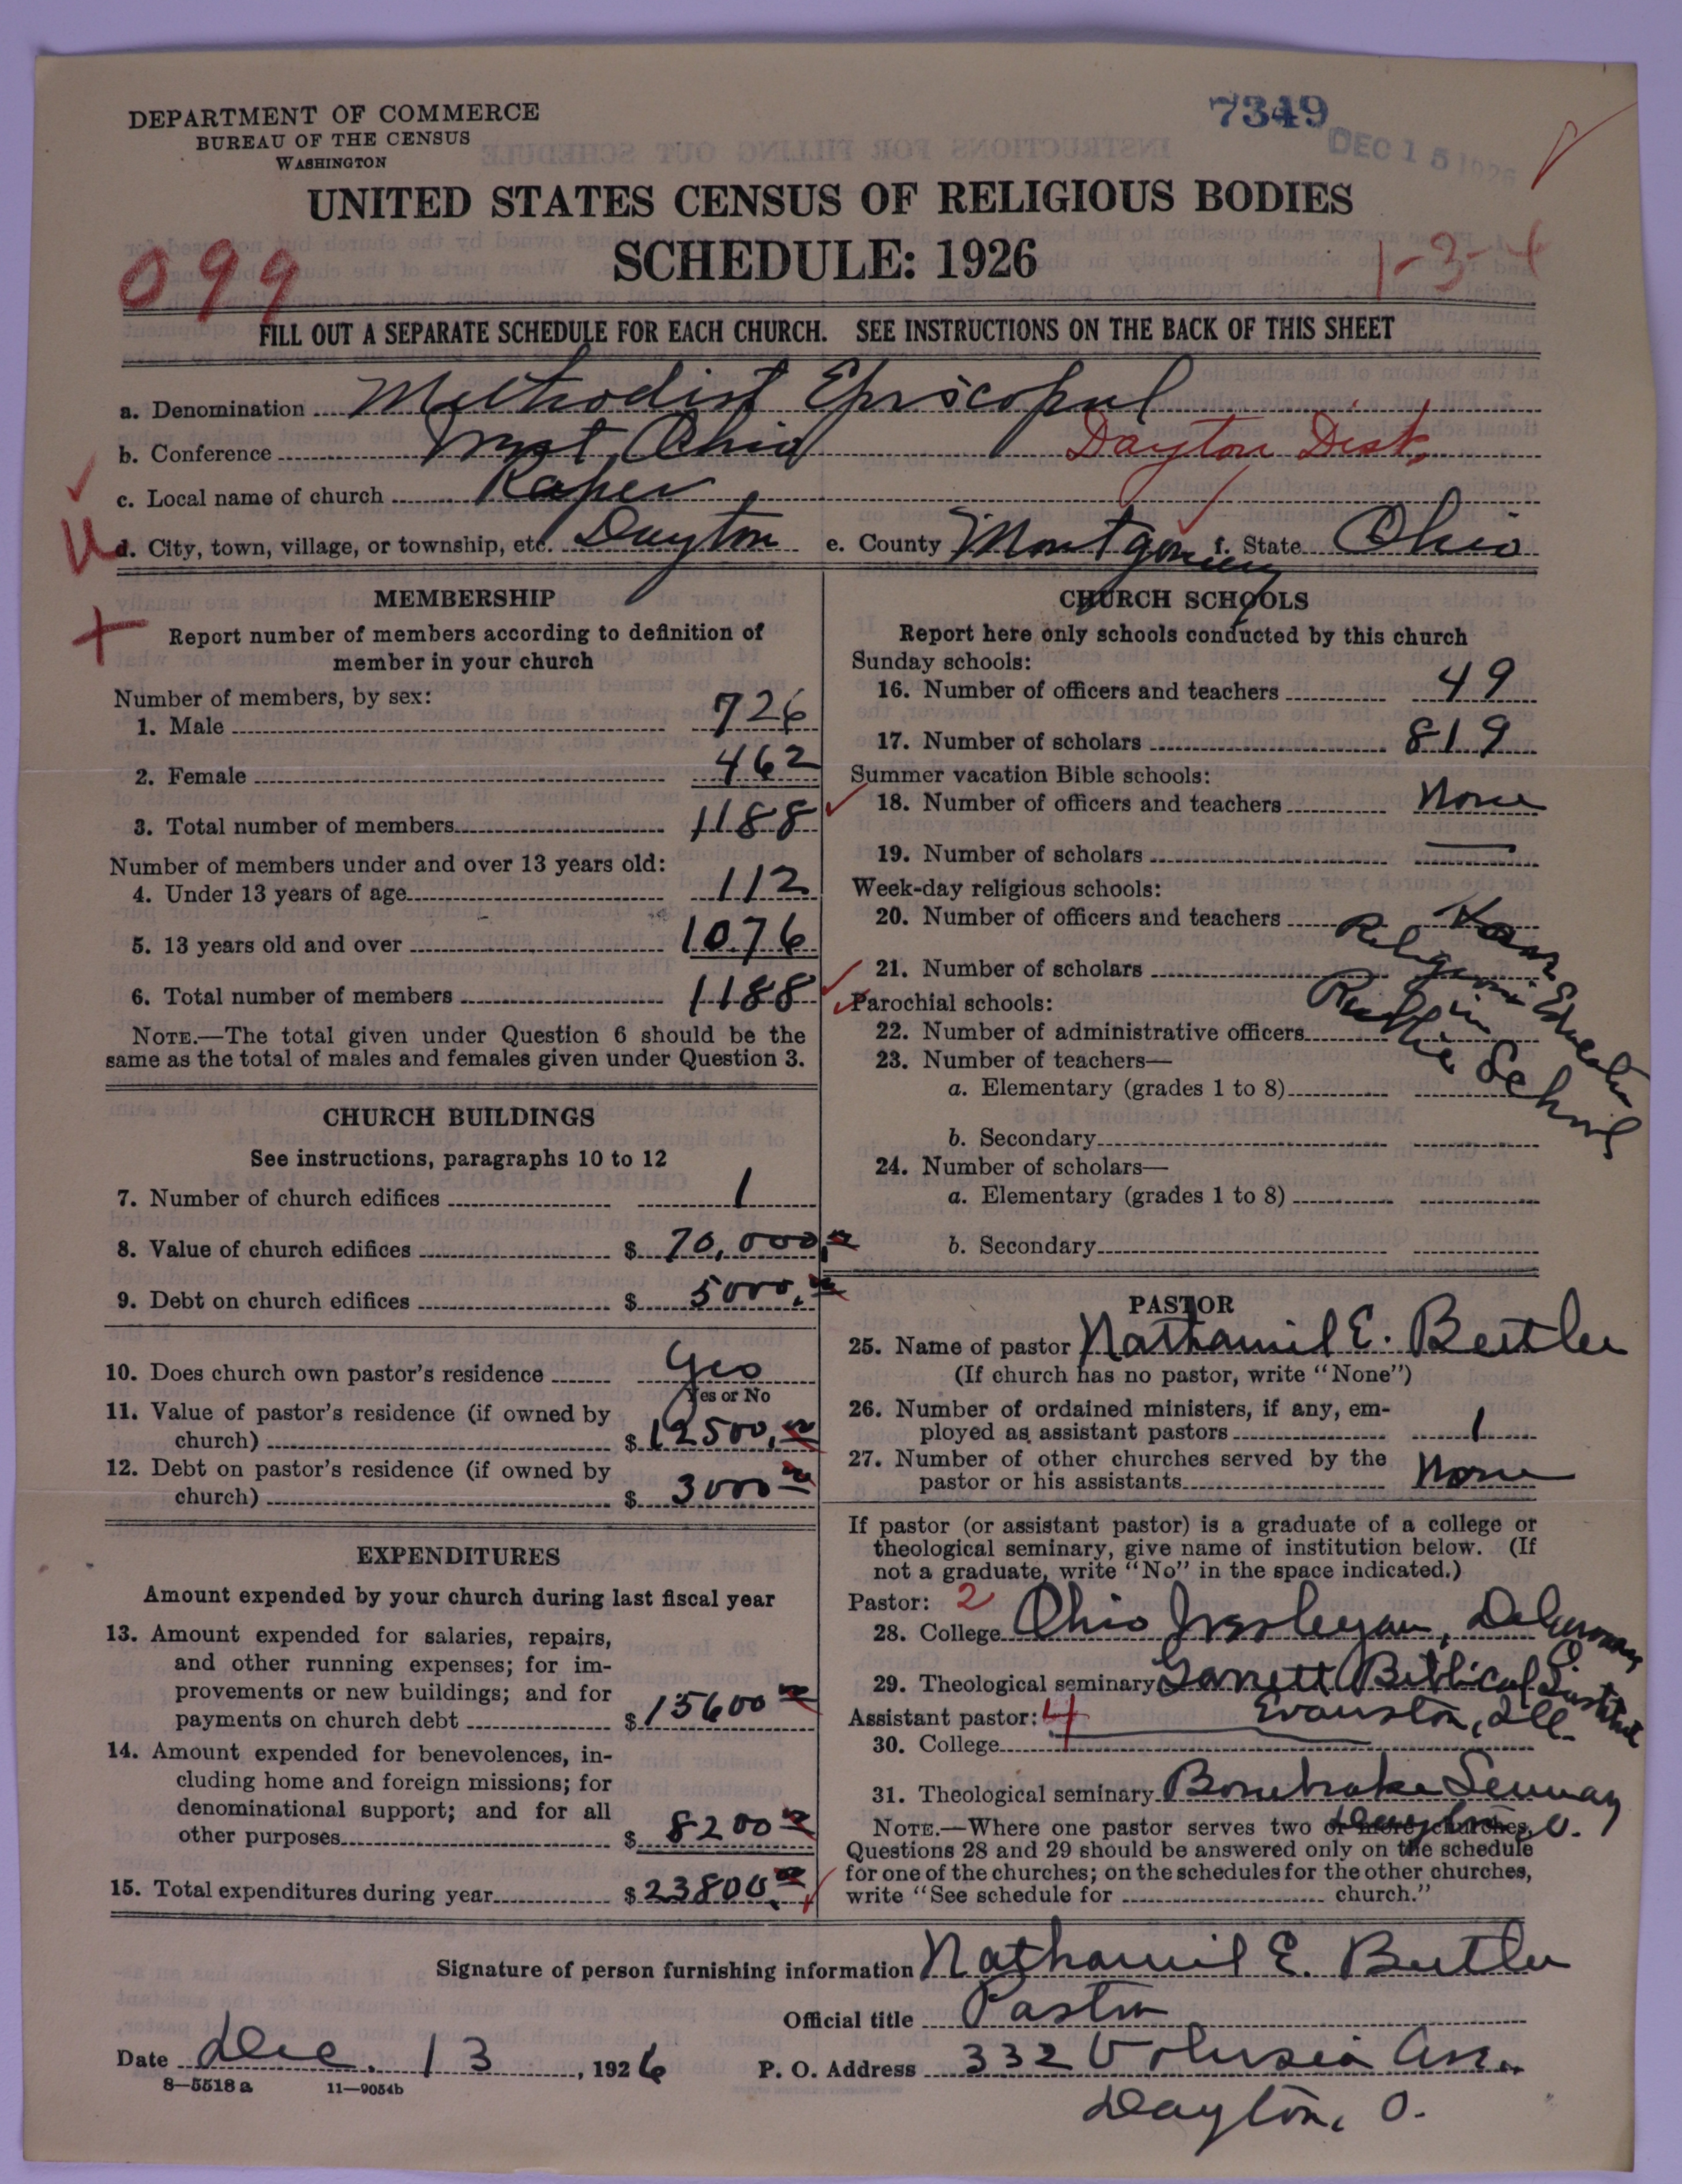 DEPARTMENT OF COMMERCE
BUREAU OF THE CENSUS
WASHINGTON
7349
DEC 15 1926
UNITED STATES CENSUS OF RELIGIOUS BODIES
SCHEDULE: 1926
099
1-3-4
FILL OUT A SEPARATE SCHEDULE FOR EACH CHURCH. SEE INSTRUCTIONS ON THE BACK OF THIS SHEET
a. Denomination Methodist Episcopal
b. Conference West Ohio Dayton Dist.
c. Local name of church Raper
U d. City, town, village, or township, etc. Dayton e. County Montgomery f. State Ohio
MEMBERSHIP
Report number of members according to definition of
member in your church
Number of members, by sex:
1. Male 726
2. Female 462
3. Total number of members 1188
Number of members under and over 13 years old:
4. Under 13 years of age 112
5. 13 years old and over 1076
6. Total number of members 1188
NOTE.—The total given under Question 6 should be the
same as the total of males and females given under Question 3.
CHURCH BUILDINGS
See instructions, paragraphs 10 to 12
7. Number of church edifices 1
8. Value of church edifices $ 70,000.00
9. Debt on church edifices $ 5000.00
10. Does church own pastor's residence Yes
Yes or No
11. Value of pastor's residence (if owned by
church) $ 12500.00
12. Debt on pastor's residence (if owned by
church) $ 3000 00
EXPENDITURES
Amount expended by your church during last fiscal year
13. Amount expended for salaries, repairs,
and other running expenses; for im-
provements or new buildings; and for
payments on church debt $ 15600 00
14. Amount expended for benevolences, in-
cluding home and foreign missions; for
denominational support; and for all
other purposes $ 8200 00
15. Total expenditures during year $ 23800.00
CHURCH SCHOOLS
Report here only schools conducted by this church
Sunday schools:
16. Number of officers and teachers 49
17. Number of scholars 819
Summer vacation Bible schools:
18. Number of officers and teachers None
19. Number of scholars —
Week-day religious schools:
20. Number of officers and teachers Have
Religious Education
in
Public School
21. Number of scholars
Parochial schools:
22. Number of administrative officers
23. Number of teachers—
a. Elementary (grades 1 to 8)
b. Secondary
24. Number of scholars—
a. Elementary (grades 1 to 8)
b. Secondary
PASTOR
25. Name of pastor Nathaniel E. Butler
(If church has no pastor, write "None")
26. Number of ordained ministers, if any, em-
ployed as assistant pastors 1
27. Number of other churches served by the
pastor or his assistants None
If pastor (or assistant pastor) is a graduate of a college or
theological seminary, give name of institution below. (If
not a graduate, write "No" in the space indicated.)
Pastor: 2
28. College Ohio Wesleyan, Delaware
29. Theological seminary Garrett Biblical Institute
Evanston, Ill.
Assistant pastor: 4
30. College
31. Theological seminary Bonebrake Seminary
Dayton, O.
NOTE.—Where one pastor serves two or more churches,
Questions 28 and 29 should be answered only on the schedule
for one of the churches; on the schedules for the other churches,
write "See schedule for church."
Signature of person furnishing information Nathaniel E. Butler
Official title Pastor
Date Dec. 13, 1926 P. O. Address 332 Volusia Ave.
Dayton, O.
8—5518 a 11—9054b